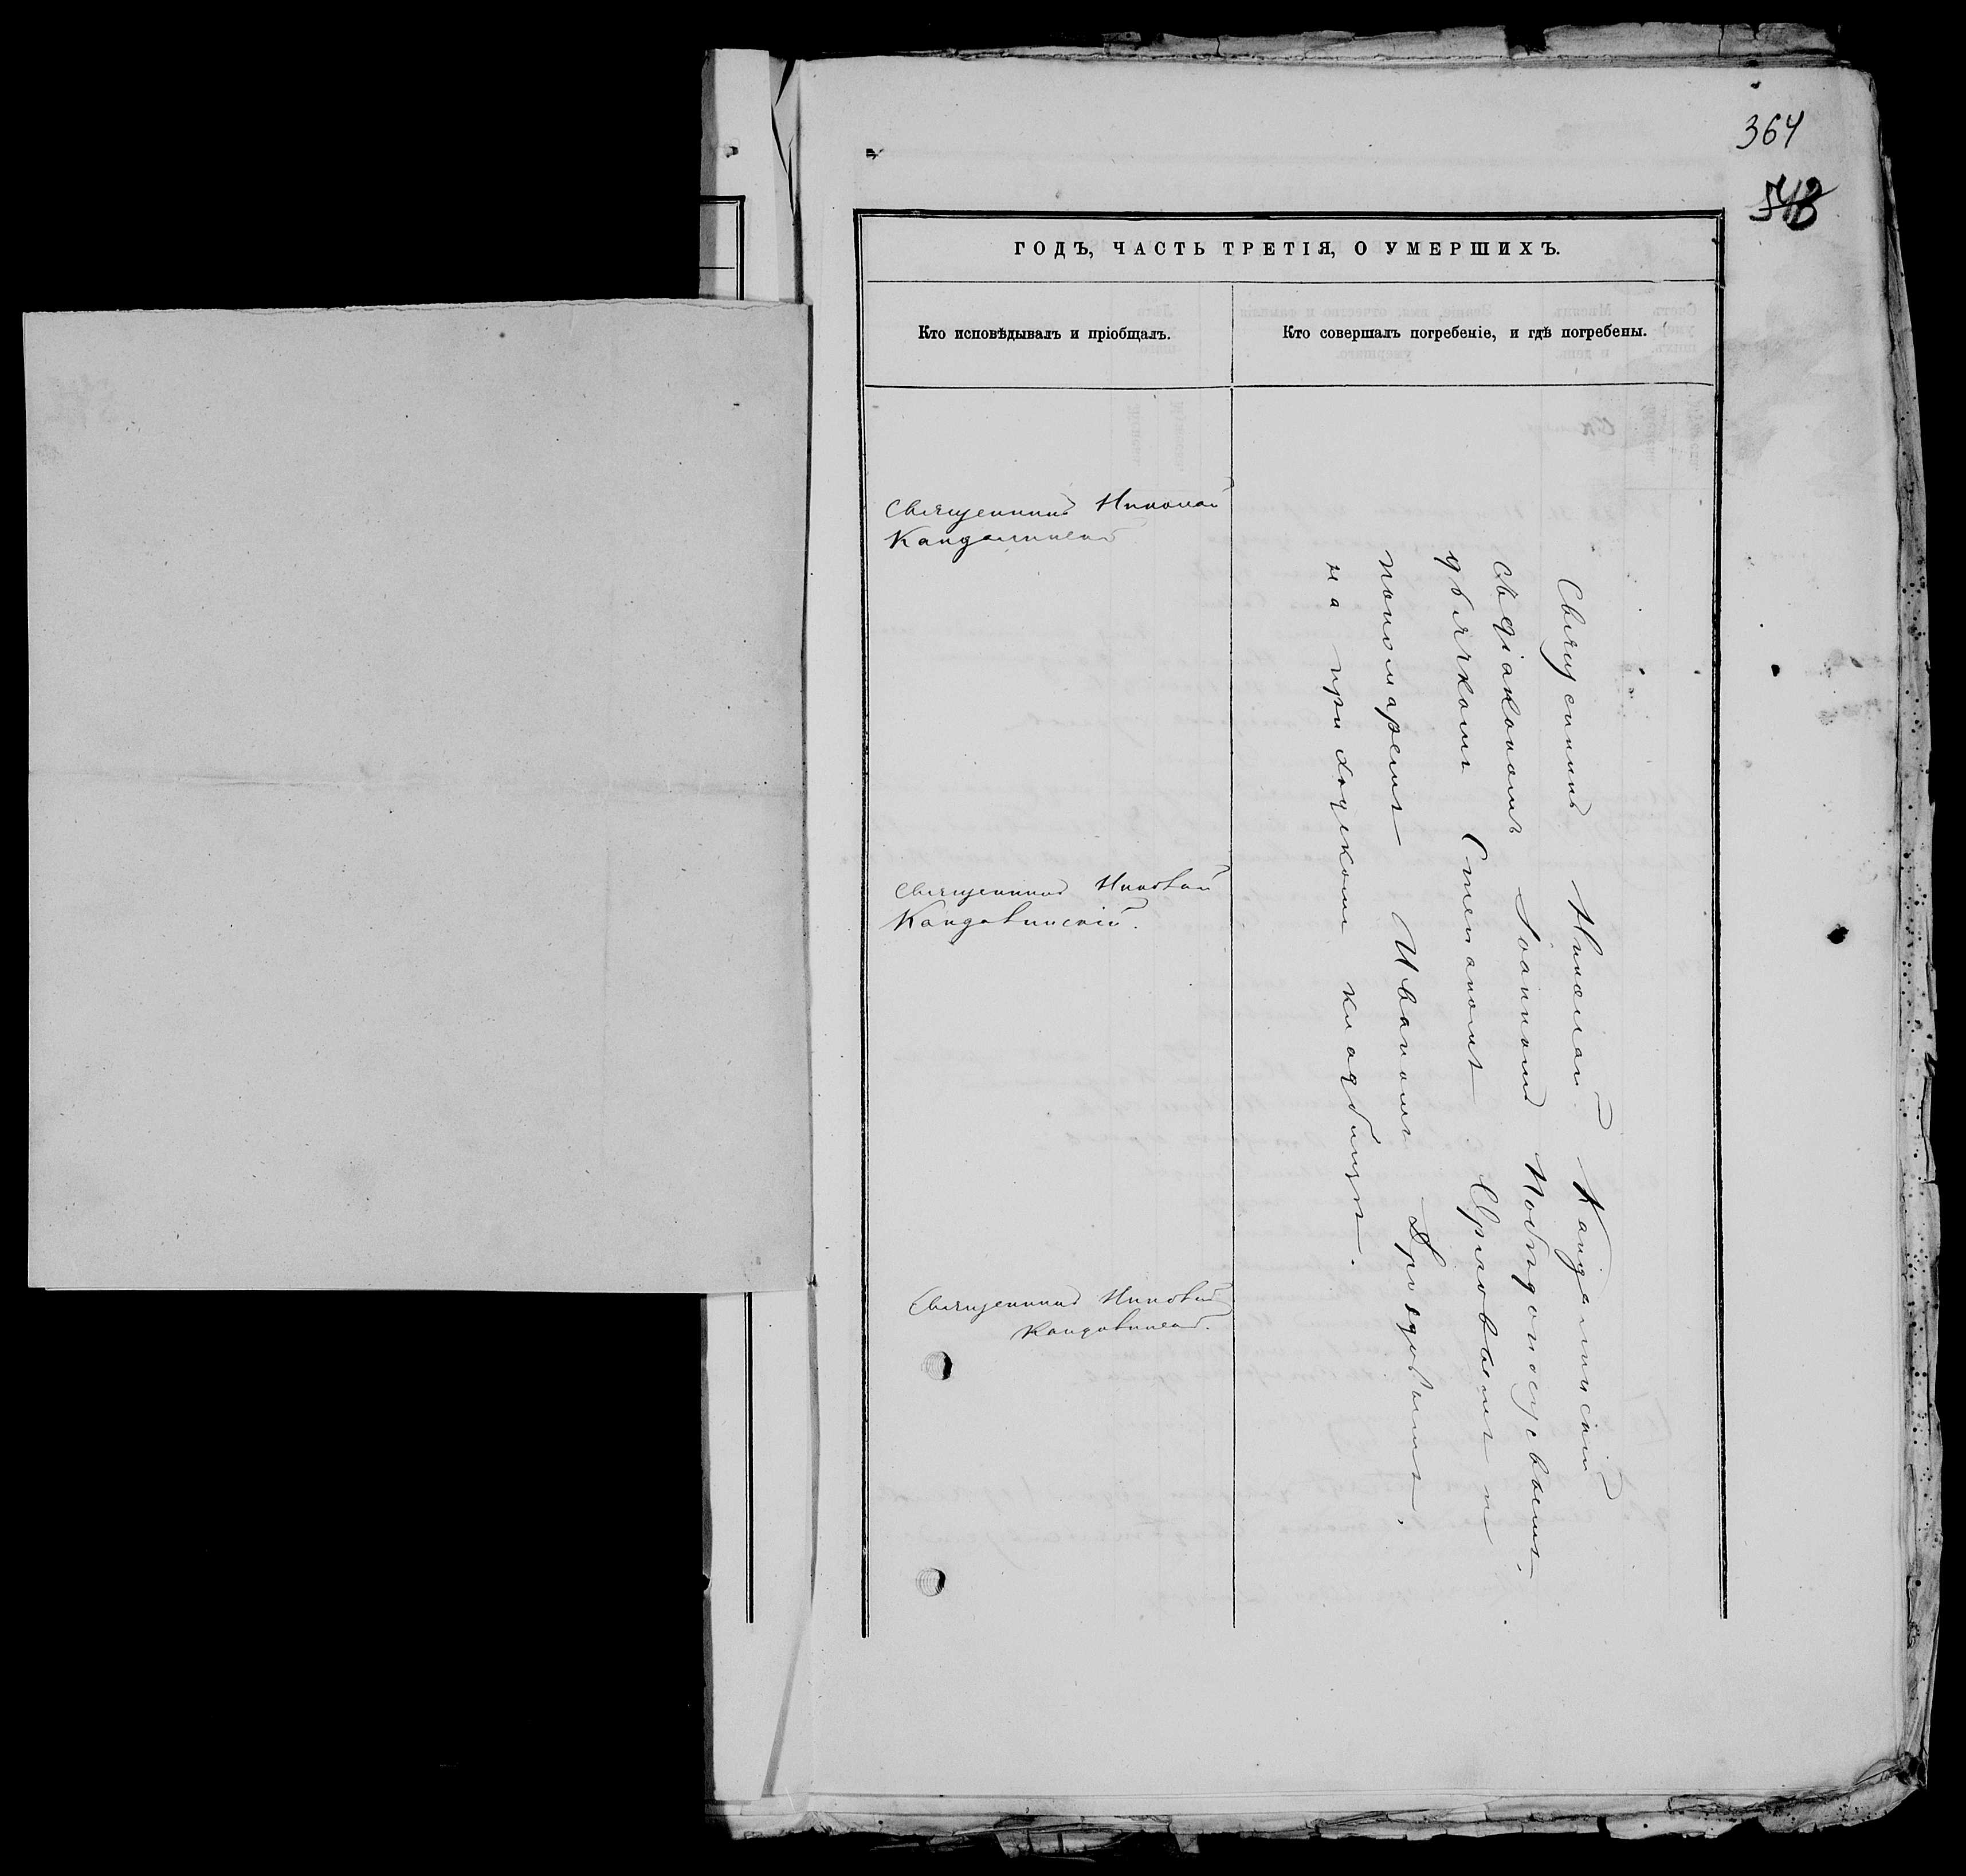 364
548
ГОДЪ, ЧАСТЬ ТРЕТІЯ, О УМЕРШИХЪ.
Кто исповѣдывалъ и пріобщалъ.
Кто совершалъ погребеніе, и гдѣ погребены.
Священникъ Николай
Кандалинскій
Священникъ Николай
Кандалинскій.
Священникъ Николай
Кандалинскій.
Священникъ Николай Кандалинскій
съ діакономъ Іоанномъ Побѣдоносцевымъ,
дьячкомъ Степаномъ Орловымъ и
пономаремъ Иваномъ Дроздовымъ,
на приходскомъ кладбищѣ.